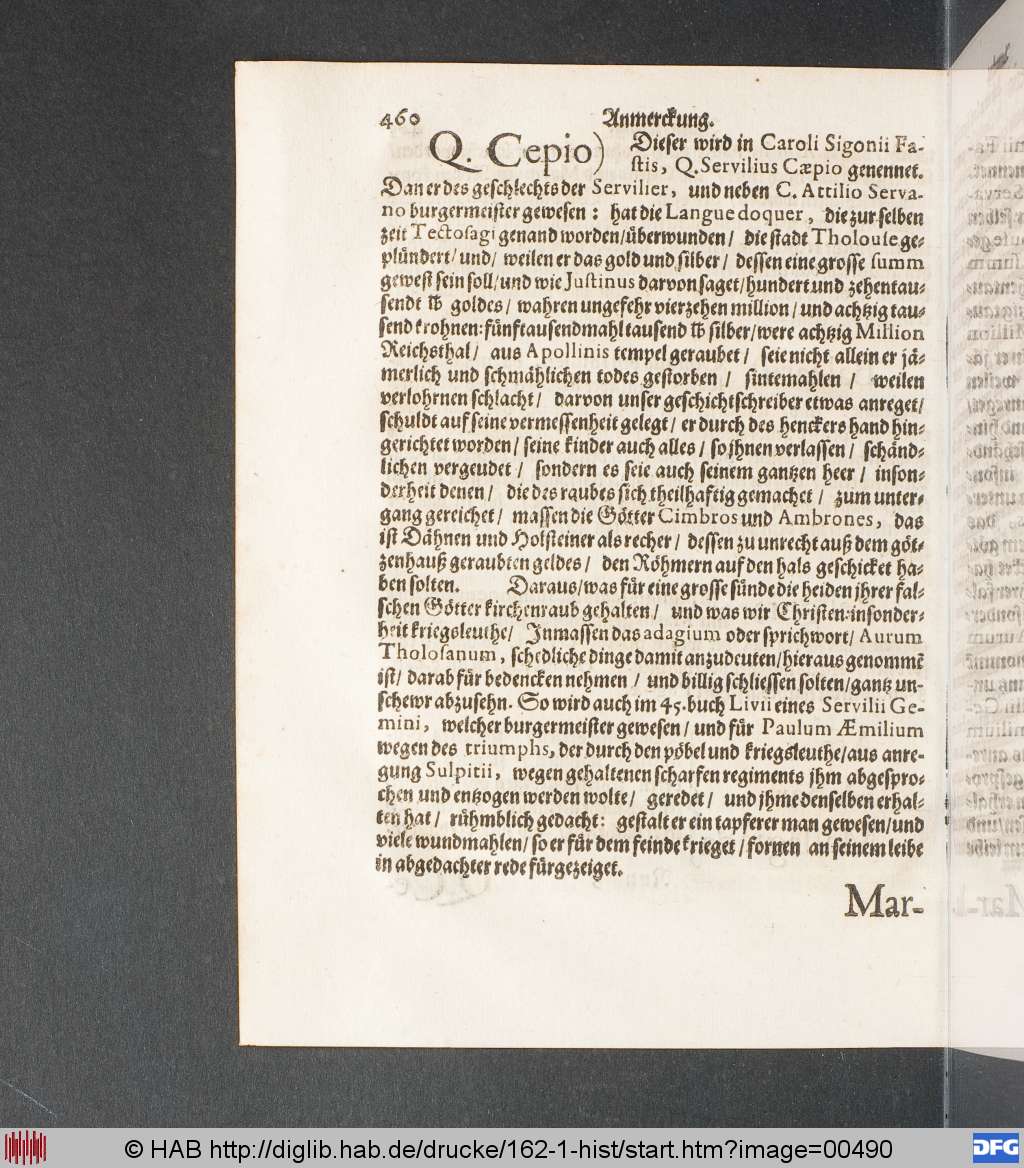 460 Anmerckung.
Q. Cepio) Dieser wird in Caroli Sigonii Fa-
stis, Q. Servilius Cæpio genennet.
Dan er des geschlechts der Servilier, und neben C. Attilio Serva-
no burgermeister gewesen: hat die Languedoquer, die zur selben
zeit Tectosagi genand worden/ überwunden/ die stadt Tholouse ge-
plündert/ und/ weilen er das gold und silber/ dessen eine grosse summ
gewest sein soll/ und wie Justinus darvon saget/ hundert und zehentau-
sendt ℔ goldes/ wahren ungefehr vierzehen million/ und achtzig tau-
send krohnen: fünftausendmahl tausend ℔ silber/ were achtzig Million
Reichsthal/ aus Apollinis tempel geraubet/ seie nicht allein er jä-
merlich und schmählichen todes gestorben/ sintemahlen/ weilen
verlohrnen schlacht/ darvon unser geschichtschreiber etwas anreget/
schuldt auf seine vermessenheit gelegt/ er durch des henckers hand hin-
gerichtet worden/ seine kinder auch alles/ so ihnen verlassen/ schänd-
lichen vergeudet/ sondern es seie auch seinem gantzen heer/ inson-
derheit denen/ die des raubes sich theilhaftig gemachet/ zum unter-
gang gereichet/ massen die Götter Cimbros und Ambrones, das
ist Dähnen und Holsteiner als recher/ dessen zu unrecht auß dem göt-
zenhauß geraubten geldes/ den Röhmern auf den hals geschicket ha-
ben solten. Daraus/ was für eine grosse sünde die heiden jhrer fal-
schen Götter kirchenraub gehalten/ und was wir Christen: insonder-
heit kriegsleuthe/ Inmassen das adagium oder sprichwort/ Aurum
Tholosanum, schedliche dinge damit anzudeuten/ hieraus genommē
ist/ darab für bedencken nehmen/ und billig schliessen solten/ gantz un-
schewr abzusehn. So wird auch im 45. buch Livii eines Servilii Ge-
mini, welcher burgermeister gewesen/ und für Paulum Æmilium
wegen des triumphs, der durch den pöbel und kriegsleuthe/ aus anre-
gung Sulpitii, wegen gehaltenen scharfen regiments jhm abgespro-
chen und entzogen werden wolte/ geredet/ und jhme denselben erhal-
ten hat/ rühmblich gedacht: gestalt er ein tapferer man gewesen/ und
viele wundmahlen/ so er für dem feinde krieget/ fornen an seinem leibe
in abgedachter rede fürgezeiget.
Mar-
© HAB http://diglib.hab.de/drucke/162-1-hist/start.htm?image=00490
DFG